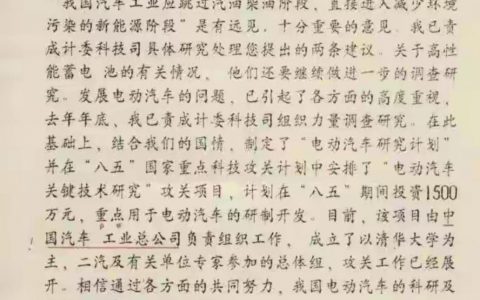 "我国汽车工业应跳过汽油柴油阶段，直接进入减少环境
污染的新能源阶段"是有远见、十分重要的意见。我已责
成计委科技司具体研究处理您提出的两条建议。关于高性
能蓄电 池的有关情况， 他们还要继续做进一步的调查研
究。发展电动汽车的问题，已引起了各方面的高度重视，
去年年底、我已责成计委科技司组织力量调查研究。在此
基础上，结合我们的国情，制定了"电动汽车研究计划"
并在"八五"国家重点科技攻关计划中安排了"电动汽车
关键技术研究"攻关项目，计划在"八五"期间投资1500
万元，重点用于电动汽车的研制开发。目前，该项目由中
国汽车 工业总公司负责组织工作， 成立了以清华大学为
主，二汽及有关单位专家参加的总体组，攻关工作已经展
开。相信通过各方面的共同努力，我国电动汽车的科研及